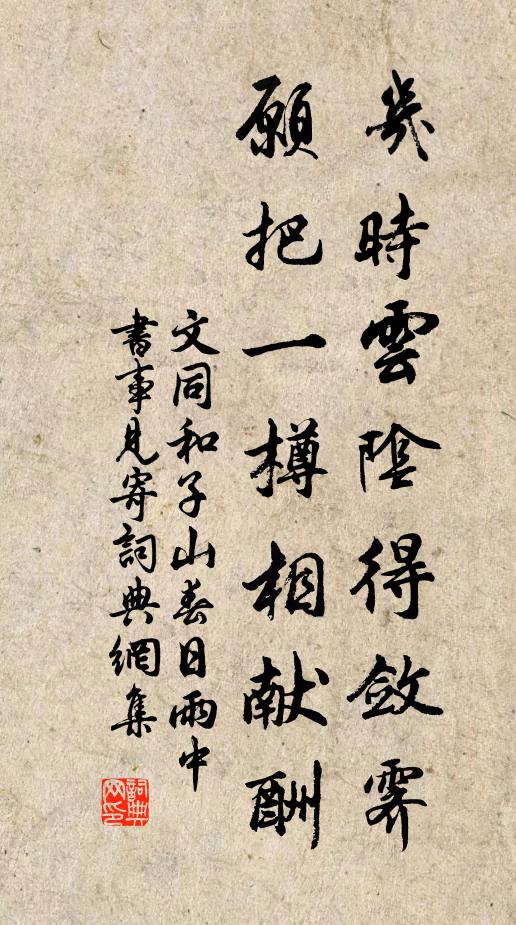 幾時雲陰得斂霽
願把一樽相献酬
文同和子山春日雨中
書事見寄詞典網集
詞典网印